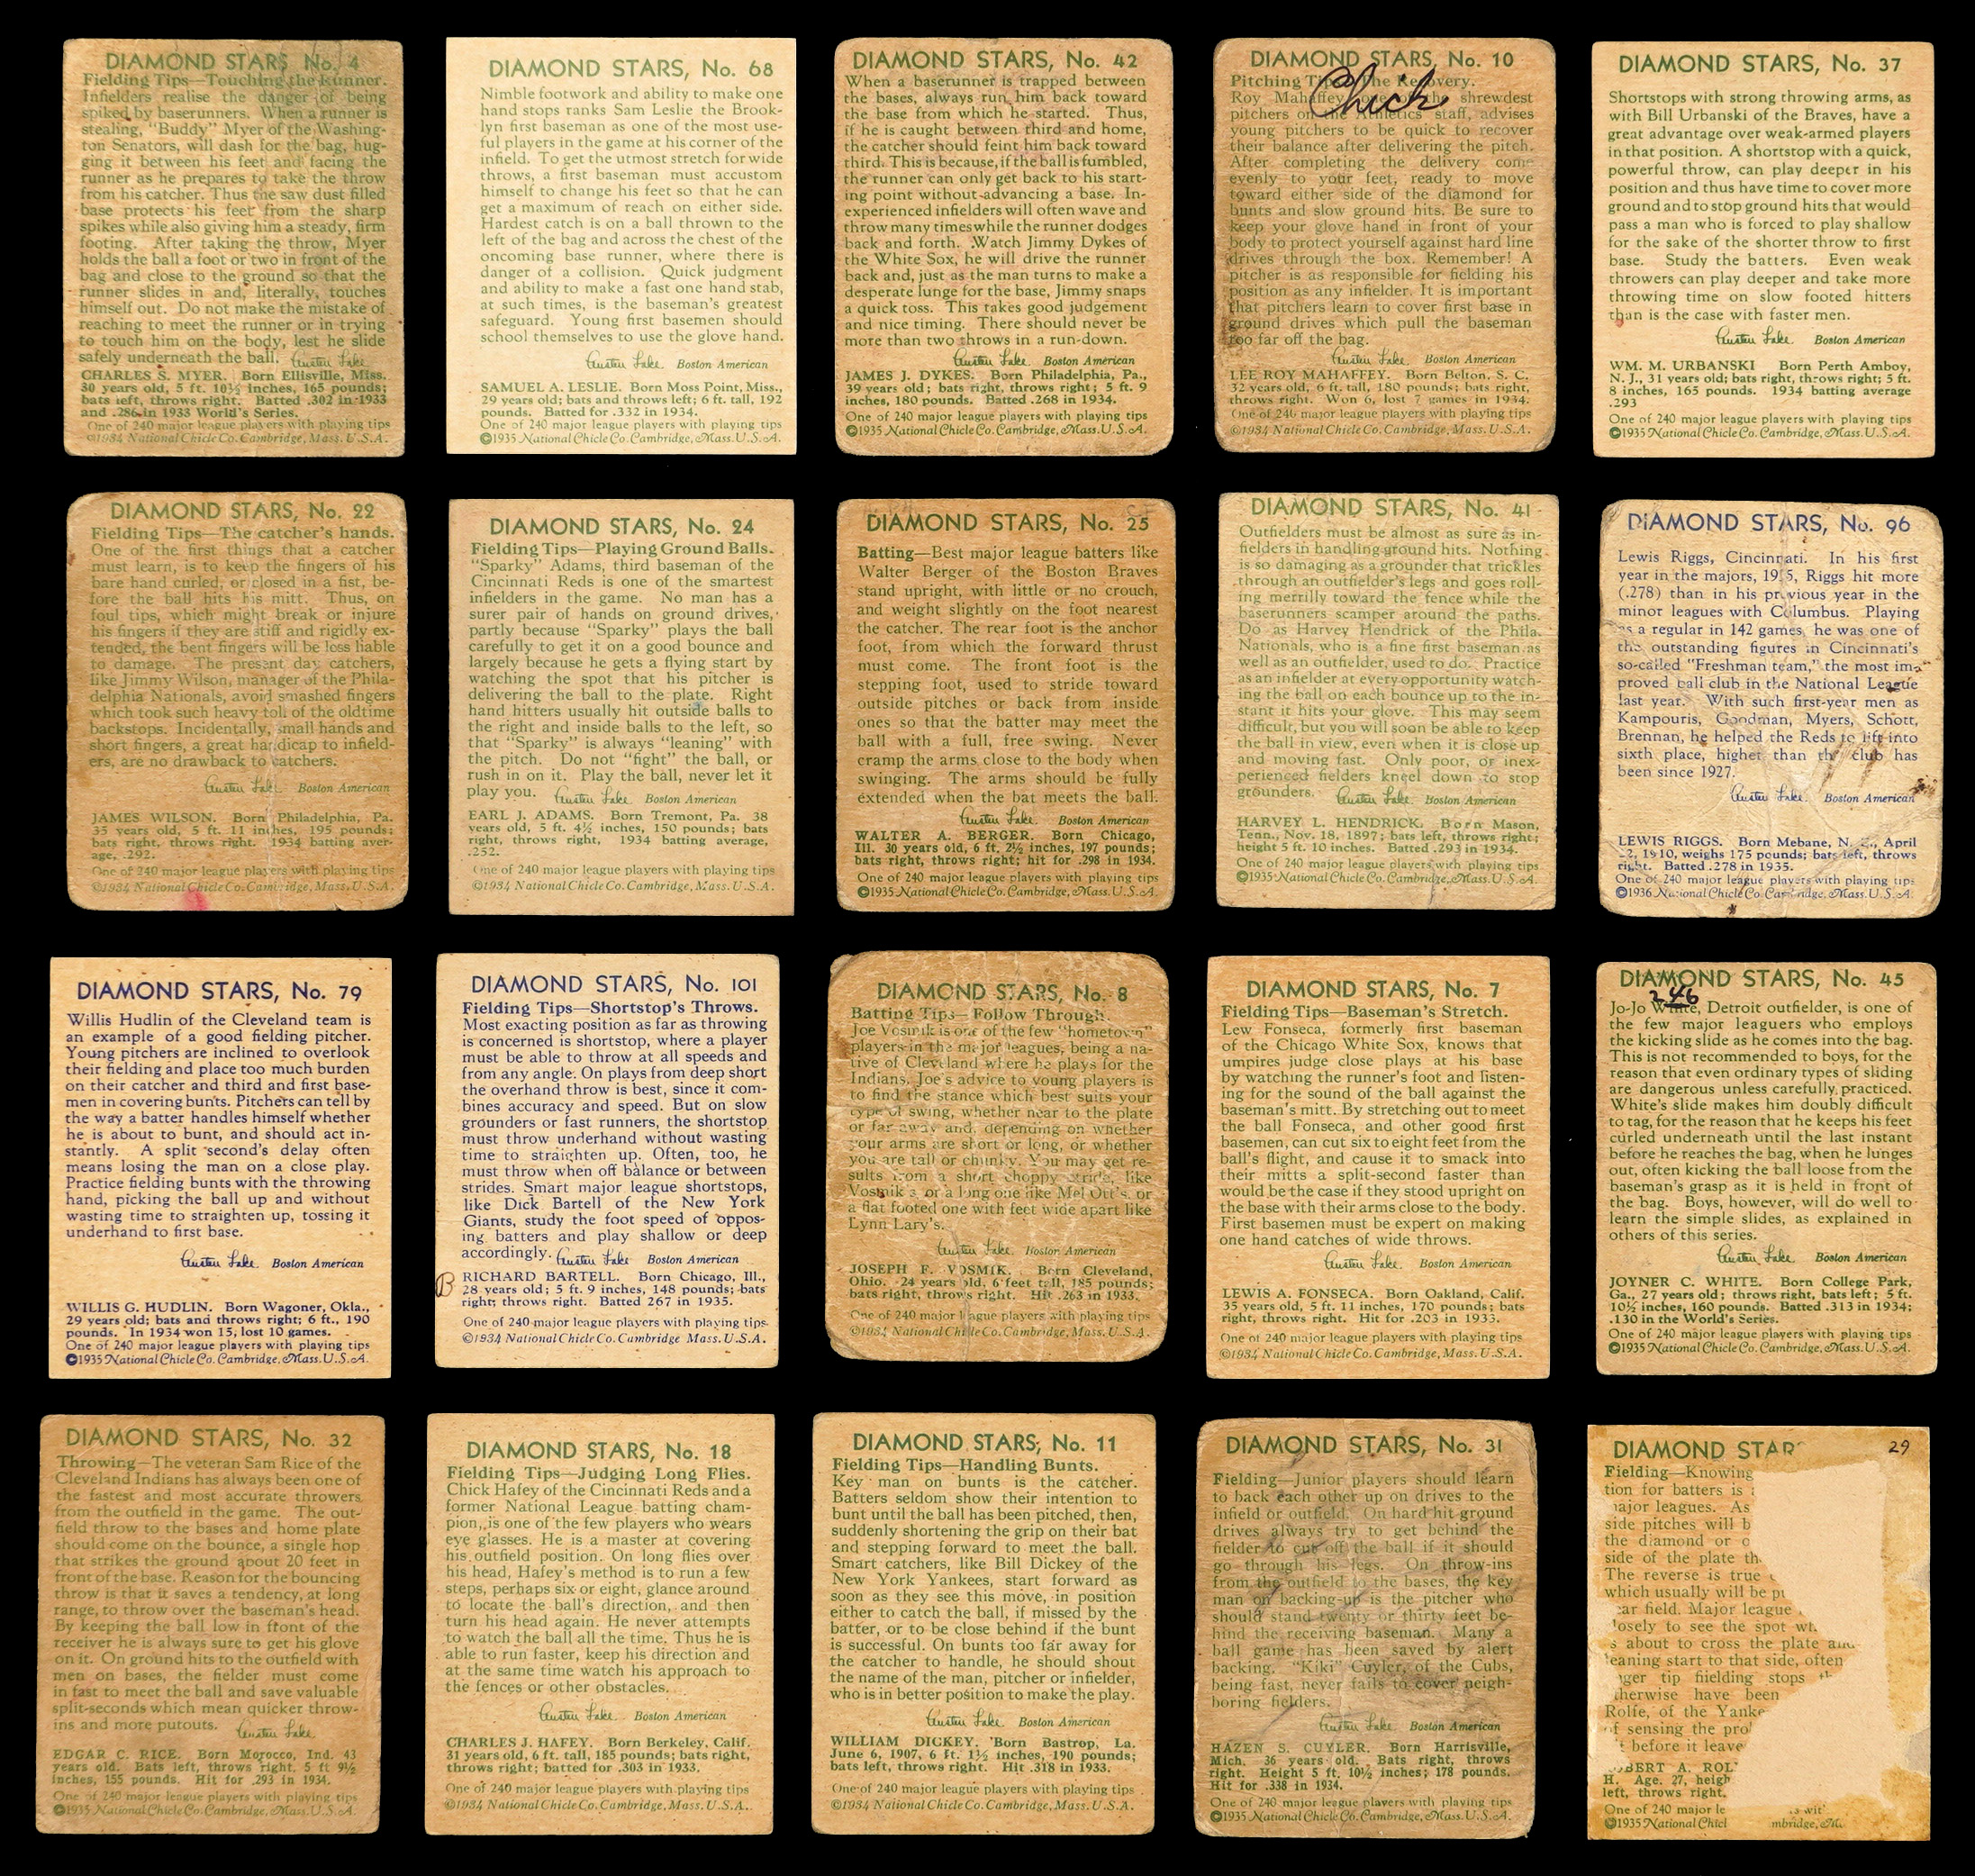 DIAMOND STARS, No. 4
Fielding Tips—Touching the Runner.
Infielders realise the danger of being
spiked by baserunners. When a runner is
stealing, "Buddy" Myer of the Washing-
ton Senators, will dash for the bag, hug-
ging it between his feet and facing the
runner as he prepares to take the throw
from his catcher. Thus the saw dust filled
base protects his feet from the sharp
spikes while also giving him a steady, firm
footing. After taking the throw, Myer
holds the ball a foot or two in front of the
bag and close to the ground so that the
runner slides in and, literally, touches
himself out. Do not make the mistake of
reaching to meet the runner or in trying
to touch him on the body, lest he slide
safely underneath the ball. Austen Lake
CHARLES S. MYER. Born Ellisville, Miss.
30 years old, 5 ft. 10½ inches, 165 pounds;
bats left, throws right. Batted .302 in 1933
and .286 in 1933 World's Series.
One of 240 major league players with playing tips
©1934 National Chicle Co. Cambridge, Mass. U.S.A.
DIAMOND STARS, No. 68
Nimble footwork and ability to make one
hand stops ranks Sam Leslie the Brook-
lyn first baseman as one of the most use-
ful players in the game at his corner of the
infield. To get the utmost stretch for wide
throws, a first baseman must accustom
himself to change his feet so that he can
get a maximum of reach on either side.
Hardest catch is on a ball thrown to the
left of the bag and across the chest of the
oncoming base runner, where there is
danger of a collision. Quick judgment
and ability to make a fast one hand stab,
at such times, is the baseman's greatest
safeguard. Young first basemen should
school themselves to use the glove hand.
Austen Lake Boston American
SAMUEL A. LESLIE. Born Moss Point, Miss.,
29 years old; bats and throws left; 6 ft. tall, 192
pounds. Batted for .332 in 1934.
One of 240 major league players with playing tips
©1935 National Chicle Co. Cambridge, Mass. U.S.A.
DIAMOND STARS, No. 42
When a baserunner is trapped between
the bases, always run him back toward
the base from which he started. Thus,
if he is caught between third and home,
the catcher should feint him back toward
third. This is because, if the ball is fumbled,
the runner can only get back to his start-
ing point without advancing a base. In-
experienced infielders will often wave and
throw many times while the runner dodges
back and forth. Watch Jimmy Dykes of
the White Sox, he will drive the runner
back and, just as the man turns to make a
desperate lunge for the base, Jimmy snaps
a quick toss. This takes good judgement
and nice timing. There should never be
more than two throws in a run-down.
Austen Lake Boston American
JAMES J. DYKES. Born Philadelphia, Pa.,
39 years old; bats right, throws right; 5 ft. 9
inches, 180 pounds. Batted .268 in 1934.
One of 240 major league players with playing tips
©1935 National Chicle Co. Cambridge, Mass. U.S.A.
DIAMOND STARS, No. 10
Chick
Pitching Tips—The Recovery.
Roy Mahaffey, one of the shrewdest
pitchers on the Athletics staff, advises
young pitchers to be quick to recover
their balance after delivering the pitch.
After completing the delivery come
evenly to your feet, ready to move
toward either side of the diamond for
bunts and slow ground hits. Be sure to
keep your glove hand in front of your
body to protect yourself against hard line
drives through the box. Remember! A
pitcher is as responsible for fielding his
position as any infielder. It is important
that pitchers learn to cover first base in
ground drives which pull the baseman
too far off the bag.
Austen Lake Boston American
LEE ROY MAHAFFEY. Born Belton, S. C.
32 years old, 6 ft. tall, 180 pounds; bats right,
throws right. Won 6, lost 7 games in 1934.
One of 240 major league players with playing tips
©1934 National Chicle Co. Cambridge, Mass. U.S.A.
DIAMOND STARS, No. 37
Shortstops with strong throwing arms, as
with Bill Urbanski of the Braves, have a
great advantage over weak-armed players
in that position. A shortstop with a quick,
powerful throw, can play deeper in his
position and thus have time to cover more
ground and to stop ground hits that would
pass a man who is forced to play shallow
for the sake of the shorter throw to first
base. Study the batters. Even weak
throwers can play deeper and take more
throwing time on slow footed hitters
than is the case with faster men.
Austen Lake Boston American
WM. M. URBANSKI Born Perth Amboy,
N. J., 31 years old; bats right, throws right; 5 ft.
8 inches, 165 pounds. 1934 batting average
.293
One of 240 major league players with playing tips
©1935 National Chicle Co. Cambridge, Mass. U.S.A.
DIAMOND STARS, No. 22
Fielding Tips—The catcher's hands.
One of the first things that a catcher
must learn, is to keep the fingers of his
bare hand curled, or closed in a fist, be-
fore the ball hits his mitt. Thus, on
foul tips, which might break or injure
his fingers if they are stiff and rigidly ex-
tended, the bent fingers will be less liable
to damage. The present day catchers,
like Jimmy Wilson, manager of the Phila-
delphia Nationals, avoid smashed fingers
which took such heavy toll of the oldtime
backstops. Incidentally, small hands and
short fingers, a great handicap to infield-
ers, are no drawback to catchers.
Austen Lake Boston American
JAMES WILSON. Born Philadelphia, Pa.
35 years old, 5 ft. 11 inches, 195 pounds;
bats right, throws right. 1934 batting aver-
age, .292.
One of 240 major league players with playing tips
©1934 National Chicle Co. Cambridge, Mass. U.S.A.
DIAMOND STARS, No. 24
Fielding Tips—Playing Ground Balls.
"Sparky" Adams, third baseman of the
Cincinnati Reds is one of the smartest
infielders in the game. No man has a
surer pair of hands on ground drives,
partly because "Sparky" plays the ball
carefully to get it on a good bounce and
largely because he gets a flying start by
watching the spot that his pitcher is
delivering the ball to the plate. Right
hand hitters usually hit outside balls to
the right and inside balls to the left, so
that "Sparky" is always "leaning" with
the pitch. Do not "fight" the ball, or
rush in on it. Play the ball, never let it
play you. Austen Lake Boston American
EARL J. ADAMS. Born Tremont, Pa. 38
years old, 5 ft. 4½ inches, 150 pounds; bats
right, throws right, 1934 batting average,
.252.
One of 240 major league players with playing tips
©1934 National Chicle Co. Cambridge, Mass. U.S.A.
DIAMOND STARS, No. 25
Batting—Best major league batters like
Walter Berger of the Boston Braves
stand upright, with little or no crouch,
and weight slightly on the foot nearest
the catcher. The rear foot is the anchor
foot, from which the forward thrust
must come. The front foot is the
stepping foot, used to stride toward
outside pitches or back from inside
ones so that the batter may meet the
ball with a full, free swing. Never
cramp the arms close to the body when
swinging. The arms should be fully
extended when the bat meets the ball.
Austen Lake Boston American
WALTER A. BERGER. Born Chicago,
Ill. 30 years old, 6 ft, 2½ inches, 197 pounds;
bats right, throws right; hit for .298 in 1934.
One of 240 major league players with playing tips
©1935 National Chicle Co. Cambridge, Mass. U.S.A.
DIAMOND STARS, No. 41
Outfielders must be almost as sure as in-
fielders in handling ground hits. Nothing
is so damaging as a grounder that trickles
through an outfielder's legs and goes roll-
ing merrily toward the fence while the
baserunners scamper around the paths.
Do as Harvey Hendrick of the Phila.
Nationals, who is a fine first baseman as
well as an outfielder, used to do. Practice
as an infielder at every opportunity watch-
ing the ball on each bounce up to the in-
stant it hits your glove. This may seem
difficult, but you will soon be able to keep
the ball in view, even when it is close up
and moving fast. Only poor, or inex-
perienced fielders kneel down to stop
grounders. Austen Lake Boston American
HARVEY L. HENDRICK. Born Mason,
Tenn., Nov. 18, 1897; bats left, throws right;
height 5 ft. 10 inches. Batted .293 in 1934.
One of 240 major league players with playing tips
©1935 National Chicle Co. Cambridge, Mass. U.S.A.
DIAMOND STARS, No. 96
Lewis Riggs, Cincinnati. In his first
year in the majors, 1935, Riggs hit more
(.278) than in his previous year in the
minor leagues with Columbus. Playing
as a regular in 142 games, he was one of
the outstanding figures in Cincinnati's
so-called "Freshman team," the most im-
proved ball club in the National League
last year. With such first-year men as
Kampouris, Goodman, Myers, Schott,
Brennan, he helped the Reds to lift into
sixth place, higher than the club has
been since 1927.
Austen Lake Boston American
LEWIS RIGGS. Born Mebane, N. C., April
22, 1910, weighs 175 pounds; bats left, throws
right. Batted .278 in 1935.
One of 240 major league players with playing tips
©1936 National Chicle Co. Cambridge, Mass. U.S.A.
DIAMOND STARS, No. 79
Willis Hudlin of the Cleveland team is
an example of a good fielding pitcher.
Young pitchers are inclined to overlook
their fielding and place too much burden
on their catcher and third and first base-
men in covering bunts. Pitchers can tell by
the way a batter handles himself whether
he is about to bunt, and should act in-
stantly. A split second's delay often
means losing the man on a close play.
Practice fielding bunts with the throwing
hand, picking the ball up and without
wasting time to straighten up, tossing it
underhand to first base.
Austen Lake Boston American
WILLIS G. HUDLIN. Born Wagoner, Okla.,
29 years old; bats and throws right; 6 ft., 190
pounds. In 1934 won 15, lost 10 games.
One of 240 major league players with playing tips
©1935 National Chicle Co. Cambridge, Mass. U.S.A.
DIAMOND STARS, No. 101
Fielding Tips—Shortstop's Throws.
Most exacting position as far as throwing
is concerned is shortstop, where a player
must be able to throw at all speeds and
from any angle. On plays from deep short
the overhand throw is best, since it com-
bines accuracy and speed. But on slow
grounders or fast runners, the shortstop
must throw underhand without wasting
time to straighten up. Often, too, he
must throw when off balance or between
strides. Smart major league shortstops,
like Dick Bartell of the New York
Giants, study the foot speed of oppos-
ing batters and play shallow or deep
accordingly. Austen Lake Boston American
B
RICHARD BARTELL. Born Chicago, Ill.,
28 years old; 5 ft. 9 inches, 148 pounds; bats
right; throws right. Batted 267 in 1935.
One of 240 major league players with playing tips
©1934 National Chicle Co. Cambridge Mass. U.S.A.
DIAMOND STARS, No. 8
Batting Tips—Follow Through.
Joe Vosmik is one of the few "hometown"
players in the major leagues, being a na-
tive of Cleveland where he plays for the
Indians. Joe's advice to young players is
to find the stance which best suits your
type of swing, whether near to the plate
or far away and, depending on whether
your arms are short or long, or whether
you are tall or chunky. You may get re-
sults from a short choppy stride, like
Vosmik's, or a long one like Mel Ott's, or
a flat footed one with feet wide apart like
Lynn Lary's.
Austen Lake Boston American
JOSEPH F. VOSMIK. Born Cleveland,
Ohio. 24 years old, 6 feet tall, 185 pounds;
bats right, throws right. Hit .263 in 1933.
One of 240 major league players with playing tips
©1934 National Chicle Co. Cambridge, Mass. U.S.A.
DIAMOND STARS, No. 7
Fielding Tips—Baseman's Stretch.
Lew Fonseca, formerly first baseman
of the Chicago White Sox, knows that
umpires judge close plays at his base
by watching the runner's foot and listen-
ing for the sound of the ball against the
baseman's mitt. By stretching out to meet
the ball Fonseca, and other good first
basemen, can cut six to eight feet from the
ball's flight, and cause it to smack into
their mitts a split-second faster than
would be the case if they stood upright on
the base with their arms close to the body.
First basemen must be expert on making
one hand catches of wide throws.
Austen Lake Boston American
LEWIS A. FONSECA. Born Oakland, Calif.
35 years old, 5 ft. 11 inches, 170 pounds; bats
right, throws right. Hit for .203 in 1933.
One of 240 major league players with playing tips
©1934 National Chicle Co. Cambridge, Mass. U.S.A.
DIAMOND STARS, No. 45
246
Jo-Jo White, Detroit outfielder, is one of
the few major leaguers who employs
the kicking slide as he comes into the bag.
This is not recommended to boys, for the
reason that even ordinary types of sliding
are dangerous unless carefully practiced.
White's slide makes him doubly difficult
to tag, for the reason that he keeps his feet
curled underneath until the last instant
before he reaches the bag, when he lunges
out, often kicking the ball loose from the
baseman's grasp as it is held in front of
the bag. Boys, however, will do well to
learn the simple slides, as explained in
others of this series.
Austen Lake Boston American
JOYNER C. WHITE. Born College Park,
Ga., 27 years old; throws right, bats left; 5 ft.
10½ inches, 160 pounds. Batted .313 in 1934;
.130 in the World's Series.
One of 240 major league players with playing tips
©1935 National Chicle Co. Cambridge, Mass. U.S.A.
DIAMOND STARS, No. 32
Throwing—The veteran Sam Rice of the
Cleveland Indians has always been one of
the fastest and most accurate throwers
from the outfield in the game. The out-
field throw to the bases and home plate
should come on the bounce, a single hop
that strikes the ground about 20 feet in
front of the base. Reason for the bouncing
throw is that it saves a tendency, at long
range, to throw over the baseman's head.
By keeping the ball low in front of the
receiver he is always sure to get his glove
on it. On ground hits to the outfield with
men on bases, the fielder must come
in fast to meet the ball and save valuable
split-seconds which mean quicker throw-
ins and more putouts. Austen Lake
EDGAR C. RICE. Born Morocco, Ind. 43
years old. Bats left, throws right. 5 ft 9½
inches, 155 pounds. Hit for .293 in 1934.
One of 240 major league players with playing tips
©1935 National Chicle Co. Cambridge, Mass. U.S.A.
DIAMOND STARS, No. 18
Fielding Tips—Judging Long Flies.
Chick Hafey of the Cincinnati Reds and a
former National League batting cham-
pion, is one of the few players who wears
eye glasses. He is a master at covering
his outfield position. On long flies over
his head, Hafey's method is to run a few
steps, perhaps six or eight, glance around
to locate the ball's direction, and then
turn his head again. He never attempts
to watch the ball all the time. Thus he is
able to run faster, keep his direction and
at the same time watch his approach to
the fences or other obstacles.
Austen Lake Boston American
CHARLES J. HAFEY. Born Berkeley, Calif.
31 years old, 6 ft. tall, 185 pounds; bats right,
throws right; batted for .303 in 1933.
One of 240 major league players with playing tips
©1934 National Chicle Co. Cambridge, Mass. U.S.A.
DIAMOND STARS, No. 11
Fielding Tips—Handling Bunts.
Key man on bunts is the catcher.
Batters seldom show their intention to
bunt until the ball has been pitched, then,
suddenly shortening the grip on their bat
and stepping forward to meet the ball.
Smart catchers, like Bill Dickey of the
New York Yankees, start forward as
soon as they see this move, in position
either to catch the ball, if missed by the
batter, or to be close behind if the bunt
is successful. On bunts too far away for
the catcher to handle, he should shout
the name of the man, pitcher or infielder,
who is in better position to make the play.
Austen Lake Boston American
WILLIAM DICKEY. Born Bastrop, La.
June 6, 1907, 6 ft. 1½ inches, 190 pounds;
bats left, throws right. Hit .318 in 1933.
One of 240 major league players with playing tips
©1934 National Chicle Co. Cambridge, Mass. U.S.A.
DIAMOND STARS, No. 31
Fielding—Junior players should learn
to back each other up on drives to the
infield or outfield. On hard hit ground
drives always try to get behind the
fielder to cut off the ball if it should
go through his legs. On throw-ins
from the outfield to the bases, the key
man on backing-up is the pitcher who
should stand twenty or thirty feet be-
hind the receiving baseman. Many a
ball game has been saved by alert
backing. "Kiki" Cuyler, of the Cubs,
being fast, never fails to cover neigh-
boring fielders.
Austen Lake Boston American
HAZEN S. CUYLER. Born Harrisville,
Mich. 36 years old. Bats right, throws
right. Height 5 ft. 10½ inches; 178 pounds.
Hit for .338 in 1934.
One of 240 major league players with playing tips
©1935 National Chicle Co. Cambridge, Mass. U.S.A.
DIAMOND STAR
29
Fielding—Knowing
tion for batters is
major leagues. As
side pitches will b
the diamond or o
side of the plate th
The reverse is true
which usually will be
field. Major league
losely to see the spot
about to cross the plate
leaning start to that side, often
tip fielding stops
herwise have been
Rolfe, of the Yanke
of sensing the
before it leave
BERT A. ROL
H. Age. 27, heigh
left, throws right.
One of 240 major le
©1935 National Chicl mbridge, M